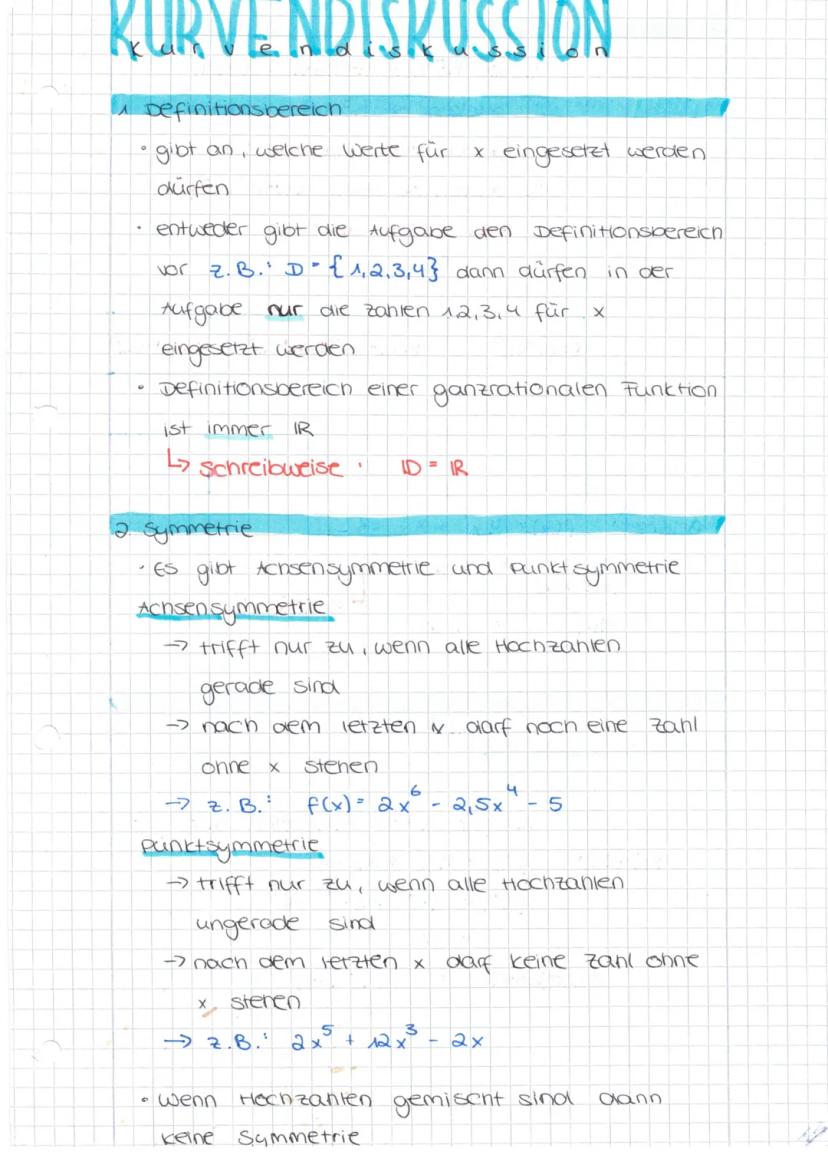 KURVENDISKUSSION
kurvendiskussion
1 Definitionsbereich
• gibt an, welche Werte für x eingesetzt werden
dürfen
• entweder gibt die Aufgabe den Definitionsbereich
vor z.B.: D = {1,2,3,4} dann dürfen in der
Aufgabe nur die Zahlen 1 2,3,4 für x
eingesetzt werden
• Definitionsbereich einer ganzrationalen Funktion
ist immer ℝ
↳ Schreibweise : 𝔻 = ℝ
2 Symmetrie
• Es gibt Achsensymmetrie und Punktsymmetrie
Achsensymmetrie
→ trifft nur zu, wenn alle Hochzahlen
gerade sind
→ nach dem letzten x darf noch eine Zahl
ohne x stehen
→ z.B.: f(x) = 2x⁶ - 2,5x⁴ - 5
Punktsymmetrie
→ trifft nur zu, wenn alle Hochzahlen
ungerade sind
→ nach dem letzten x darf keine Zahl ohne
x stehen
→ z.B.: 2x⁵ + 12x³ - 2x
• wenn Hochzahlen gemischt sind dann
keine Symmetrie